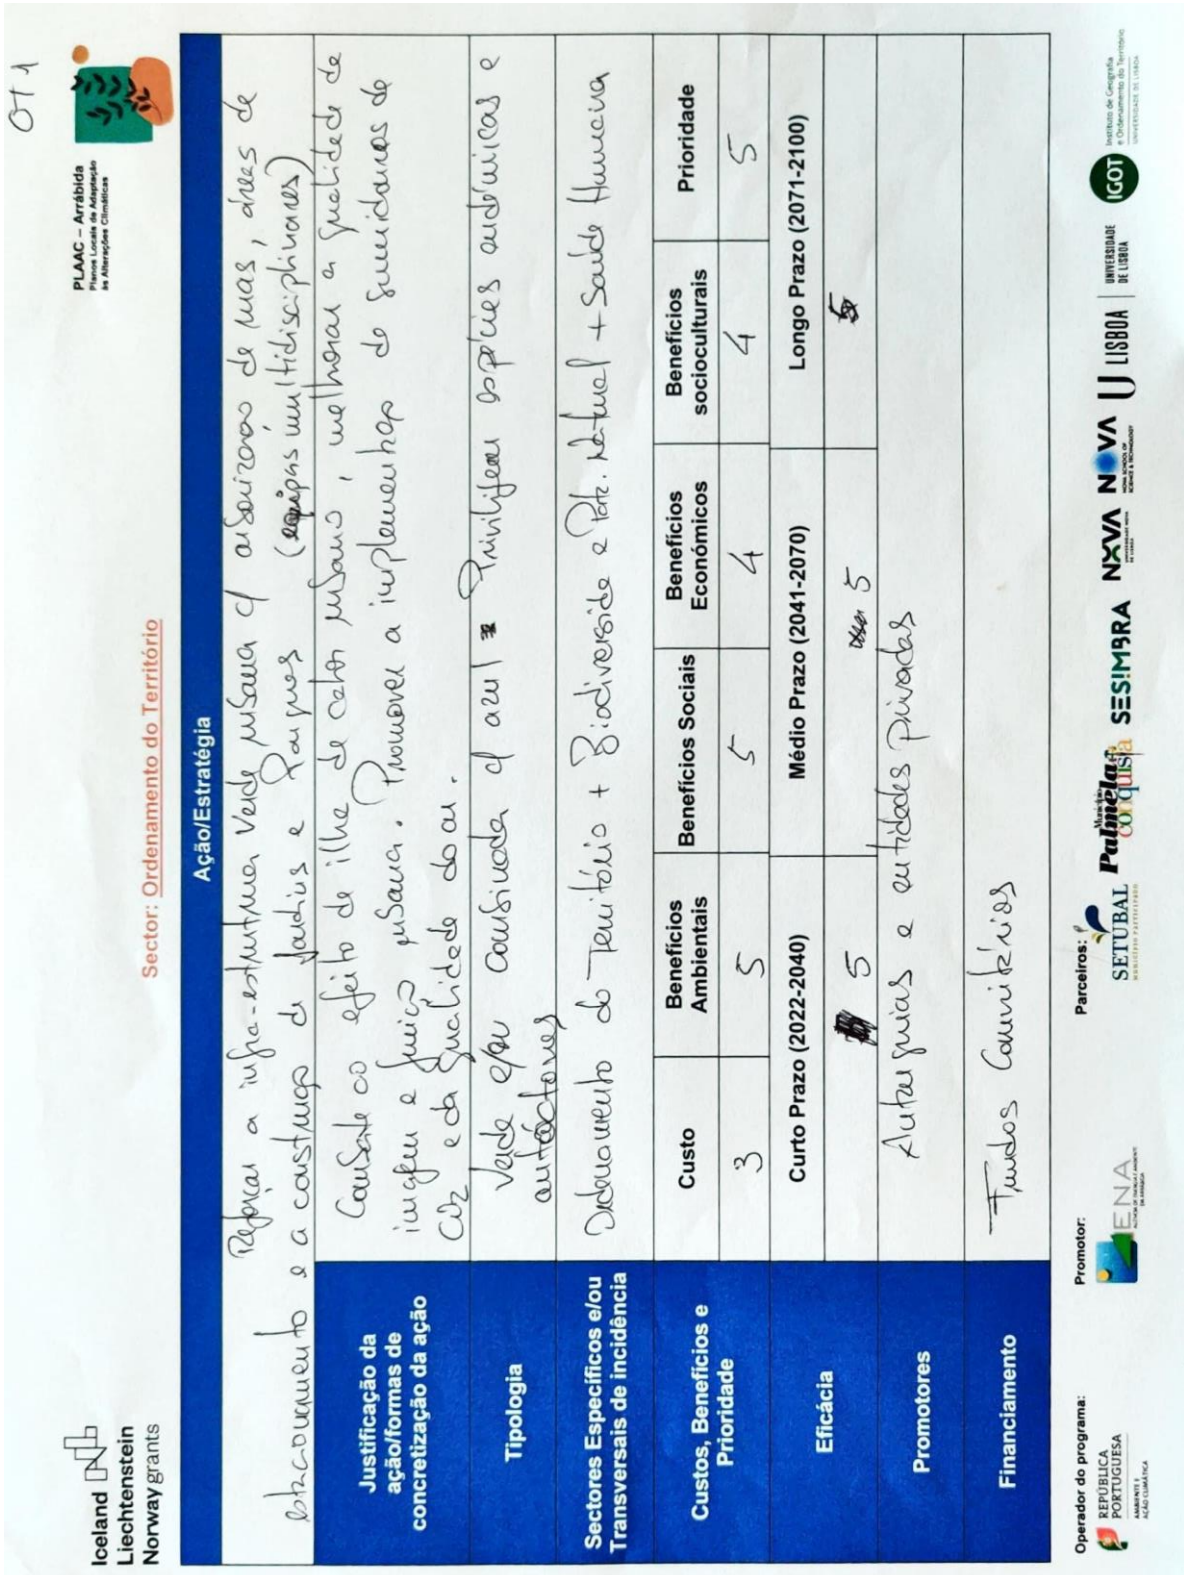 OT 1
Iceland
Liechtenstein
Norway grants
PLAAC – Arrábida
Planos Locais de Adaptação
às Alterações Climáticas
Sector: Ordenamento do Território
Ação/Estratégia
Reforçar a infra-estrutura verde urbana c/ arborização de ruas, áreas de
estacionamento e a construção de jardins e Parques (equipas multidisciplinares)
Justificação da
ação/formas de
concretização da ação
Combate ao efeito de ilha de calor urbano, melhorar a qualidade de
imagem e função urbana. Promover a implementação de sumidouros de
CO2 e da qualidade do ar.
Tipologia
Verde e/ou combinada c/ azul Privilegiar espécies endémicas e
autóctones
Sectores Específicos e/ou
Transversais de incidência
Ordenamento do Território + Biodiverside e Patr. Natural + Saúde Humana
Custos, Benefícios e
Prioridade
Custo
Benefícios
Ambientais
Benefícios Sociais
Benefícios
Económicos
Benefícios
socioculturais
Prioridade
3 5 5 4 4 5
Eficácia
Curto Prazo (2022-2040)
Médio Prazo (2041-2070)
Longo Prazo (2071-2100)
5 5 5
Promotores
Autarquias e entidades privadas
Financiamento
Fundos Comunitários
Operador do programa:
REPÚBLICA
PORTUGUESA
AMBIENTE E
AÇÃO CLIMÁTICA
Promotor:
ENA
AGÊNCIA DE ENERGIA E AMBIENTE
DA ARRÁBIDA
Parceiros:
SETUBAL
MUNICÍPIO PARTICIPADO
Município
Palmela
conquista
SESIMBRA
NOVA
NOVA
NOVA SCHOOL OF
SCIENCE & TECHNOLOGY
U LISBOA
UNIVERSIDADE
DE LISBOA
IGOT
Instituto de Geografia
e Ordenamento do Território
UNIVERSIDADE DE LISBOA